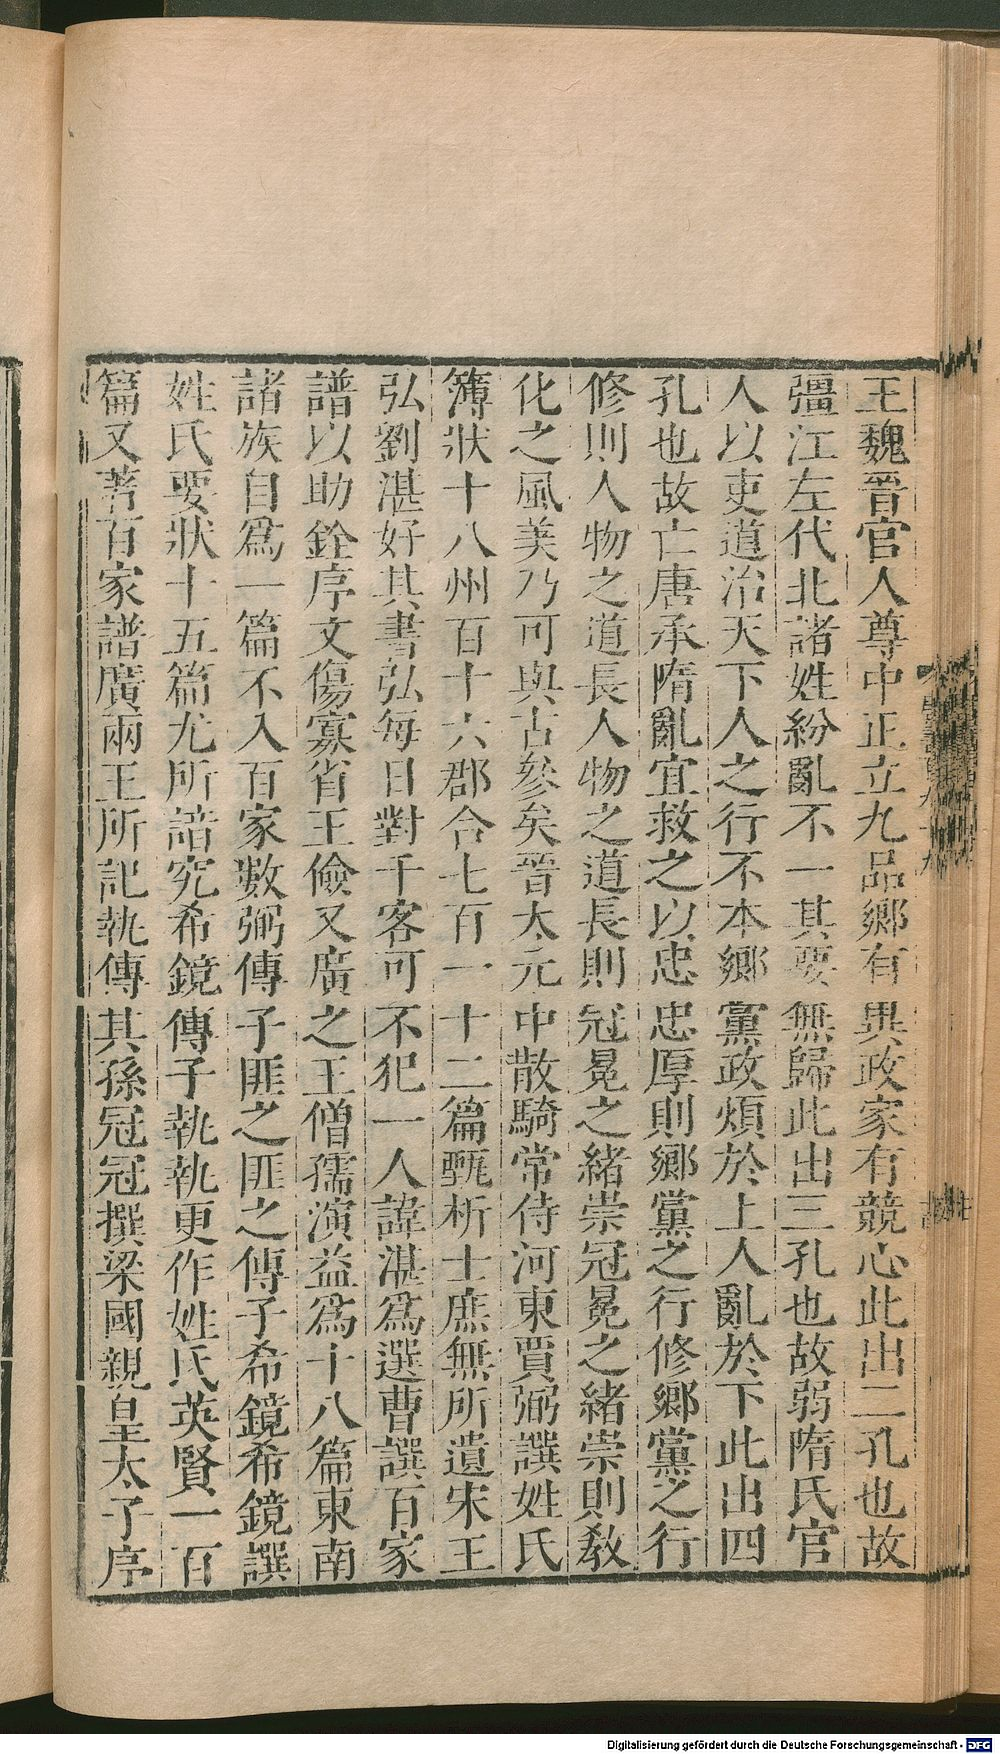 王魏晉官人尊中正立九品鄉有異政家有競心此出二孔也故
彊江左代北諸姓紛亂不一其要無歸此出三孔也故弱隋氏官
人以吏道治天下人之行不本鄉黨政煩於上人亂於下此出四
孔也故亡唐承隋亂宜救之以忠忠厚則鄉黨之行修鄉黨之行
修則人物之道長人物之道長則冠冕之緒崇冠冕之緒崇則敎
化之風美乃可與古參矣晉太元中散騎常侍河東賈弼譔姓氏
簿狀十八州百十六郡合七百一十二篇甄析士庶無所遺宋王
弘劉湛好其書弘每日對千客可不犯一人諱湛爲選曹譔百家
譜以助銓序文傷寡省王儉又廣之王僧孺演益爲十八篇東南
諸族自爲一篇不入百家數弼傳子匪之匪之傳子希鏡希鏡譔
姓氏要狀十五篇尤所諳究希鏡傳子執執更作姓氏英賢一百
篇又著百家譜廣兩王所記執傳其孫冠冠撰梁國親皇太子序
Digitalisierung gefördert durch die Deutsche Forschungsgemeinschaft - DFG